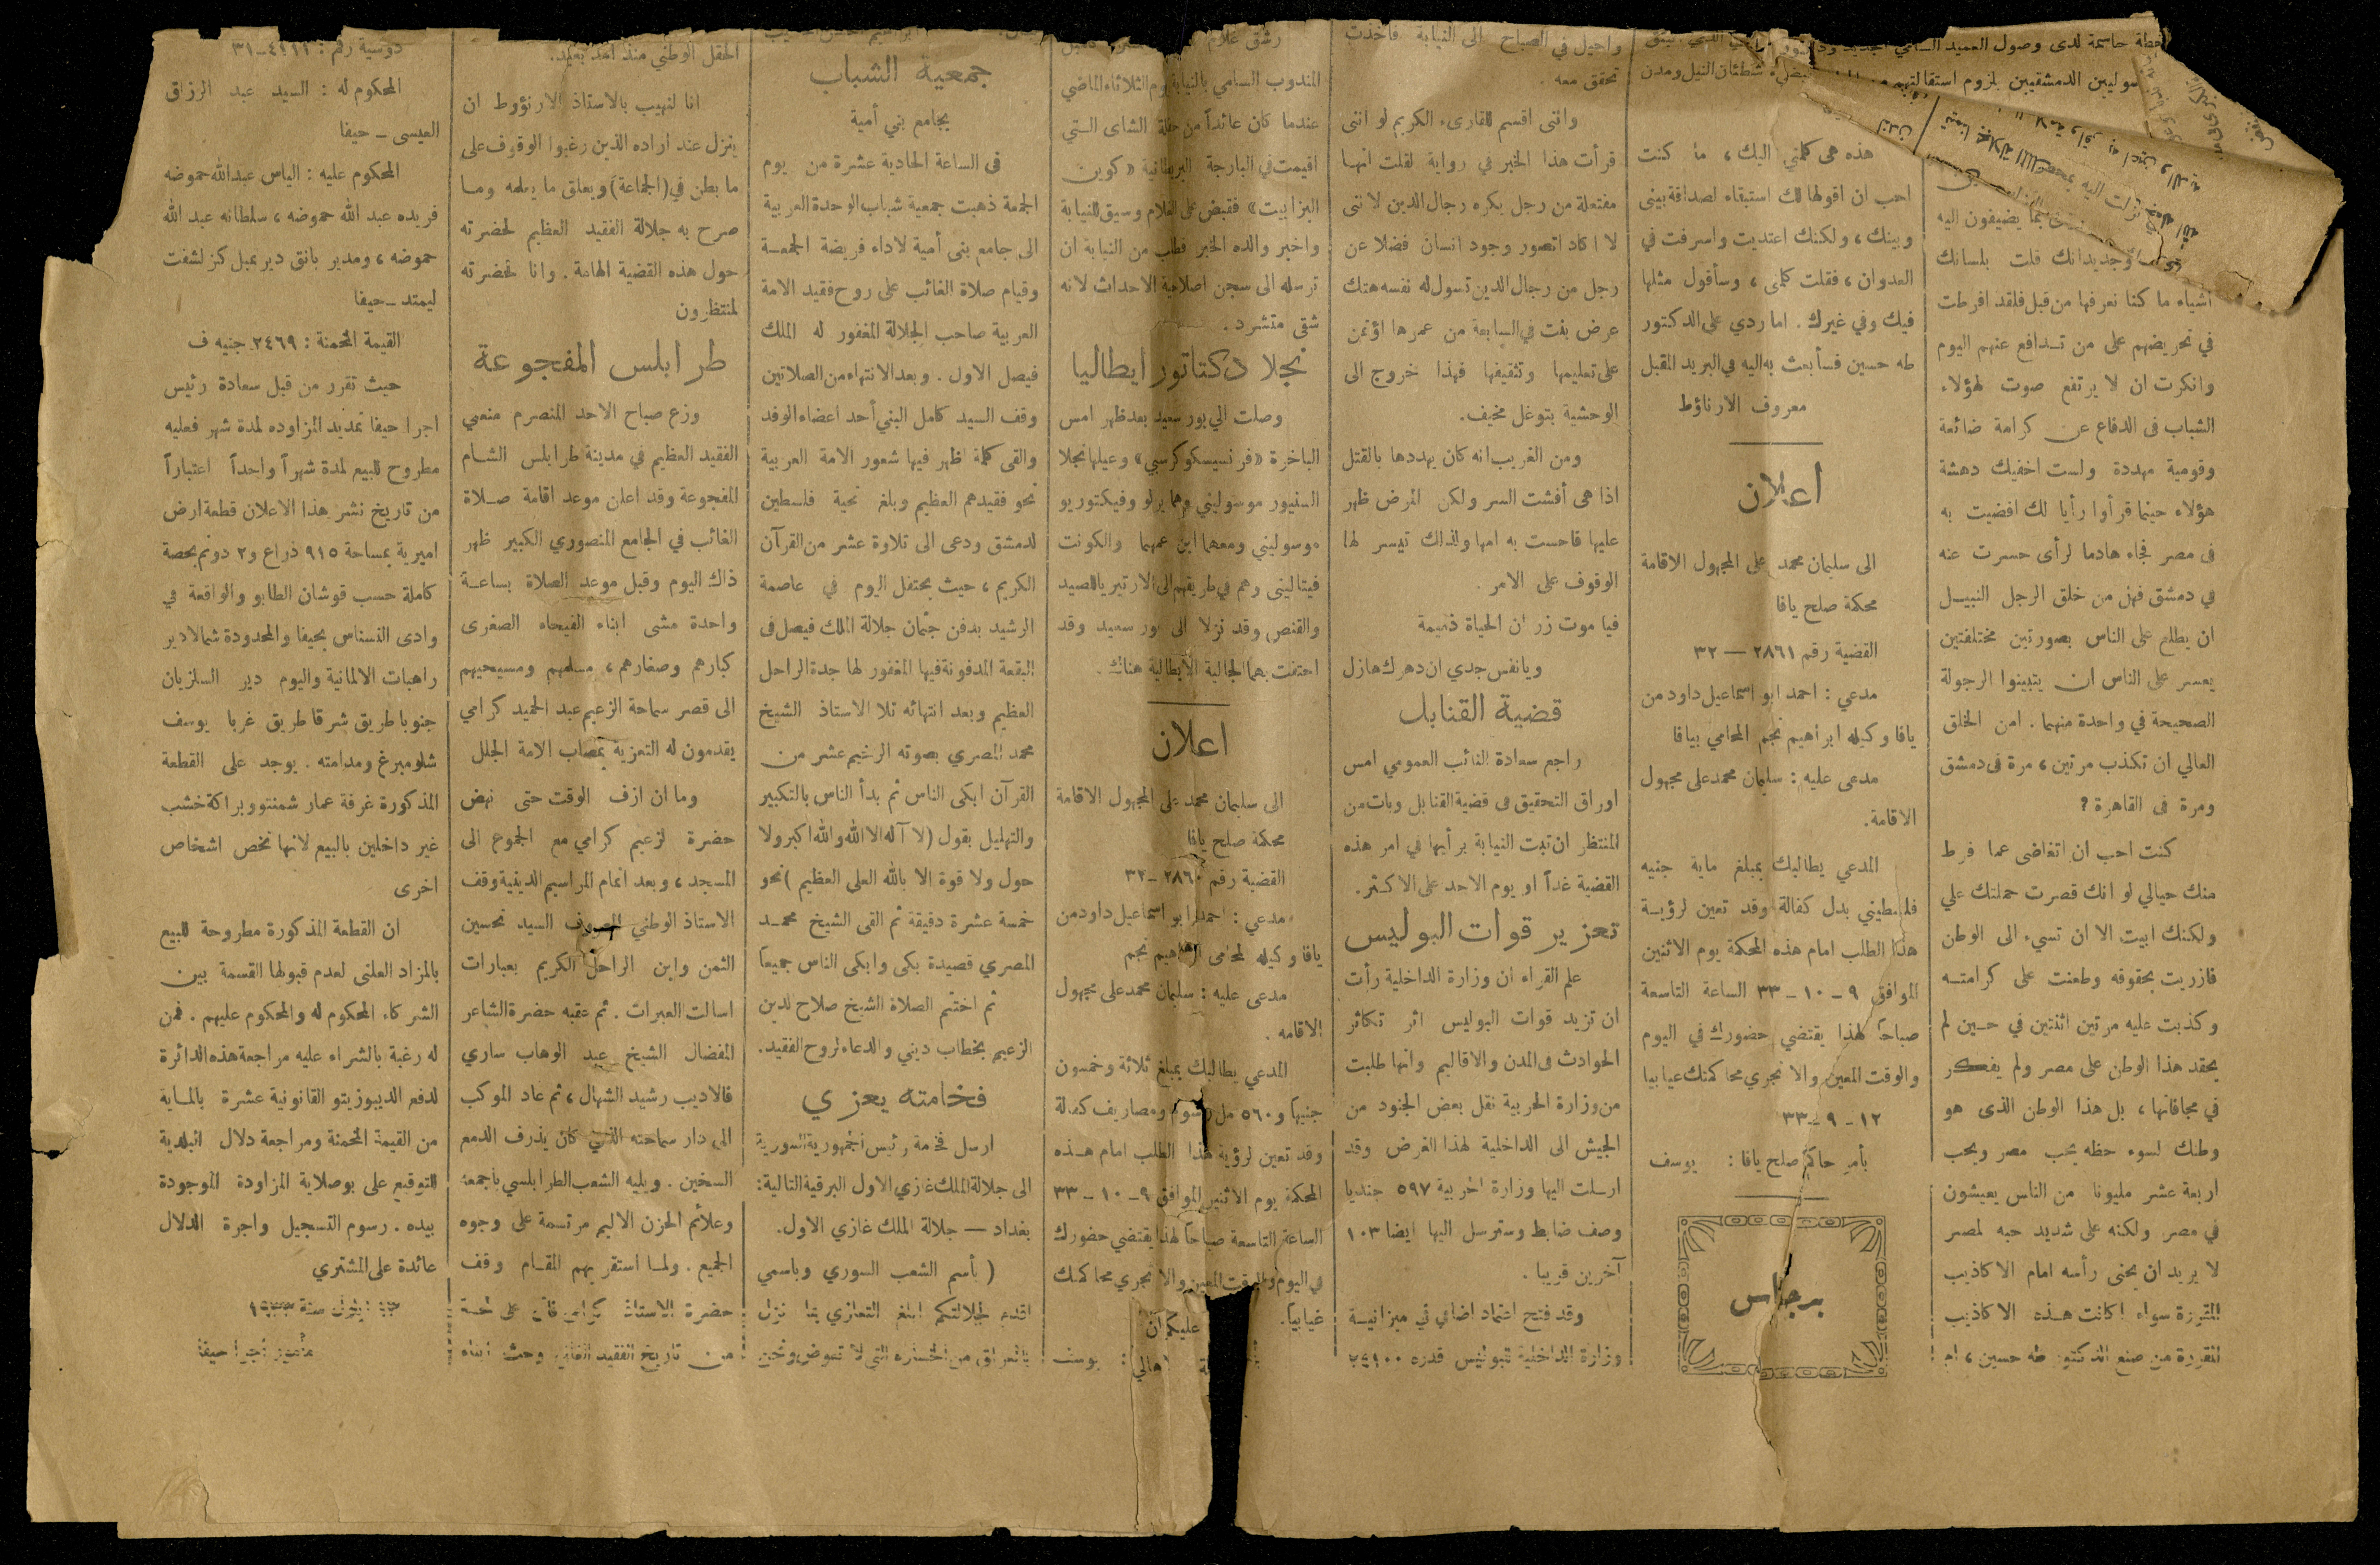 خطة حاسمة لدى وصول العميد السامي الجديد
سوليين الدمشقيين بلزوم استقالتهم
يضيفون اليه
وجديدانك قلت بلسانك
اشياء ما كنا نعرفها من قبل فلقد افرطت
في تحريضهم على من تدافع عنهم اليوم
وانكرت ان لا يرتفع صوت لهؤلاء
الشباب فى الدفاع عن كرامة ضائعة
وقومية مهددة ولست اخفيك دهشة
هؤلاء حينما قرأوا رأيا لك افضيت به
فى مصر فجاء هادما لرأى حسرت عنه
في دمشق فهز من خلق الرجل النبيل
ان يطلع على الناس بصورتين مختلفتين
يعسر على الناس ان يتبينوا الرجولة
الصحيحة في واحدة منهما . امن الخلق
العالي ان تكذب مرتين ، مرة فى دمشق
ومرة فى القاهرة ؟
كنت احب ان اتغاضى عما فرط
منك حيالي لو انك قصرت حملتك علي
ولكنك ابيت الا ان تسيء الى الوطن
فازريت بحقوقه وطعنت على كرامته
وكذبت عليه مرتين اثنتين في حين لم
يحقد هذا الوطن على مصر ولم يفكر
في مجافاتها ، بل هذا الوطن الذى هو
وطنك لسوء حظه يحب مصر ويحب
اربعة عشر مليونا من الناس يعيشون
في مصر ولكنه على شديد حبه لمصر
لا يريد ان يحنى رأسه امام الاكاذيب
المقررة سواء اكانت هذه الاكاذيب
المقررة من صنع الدكتور طه حسين ، ام
شطئان النيل ومدن
هذه هى كلمتي اليك ، ما كنت
احب ان اقولها لك استبقاء لصداقة بينى
وبينك ، ولكنك اعتديت واسرفت في
العدوان ، فقلت كلمتى ، وسأقول مثلها
فيك وفي غيرك . اما ردي على الدكتور
طه حسين فسأبعث به اليه في البريد المقبل
معروف الارناؤط
أعلان
الى سليمان محمد على المجهول الاقامة
محكمة صلح يافا
القضية رقم ٢٨٦١ — ٣٢
مدعي : احمد ابو اسماعيل داود من
يافا وكيله ابراهيم نجم المحامي بيافا
مدعى عليه : سليمان محمد على مجهول
الاقامة.
المدعي يطالبك بمبلغ ماية جنيه
فلسطيني بدل كفالة وقد تعين لرؤية
هذا الطلب امام هذه المحكمة يوم الاثنين
الموافق ٩ - ١٠ - ٣٣ الساعة التاسعة
صباحاً لهذا يقتضي حضورك في اليوم
والوقت المعين والا تجري محاكمتك غيابيا
١٢ - ٩ - ٣٣
بأمر حاكم صلح يافا : يوسف
برجاس
واحيل في الصباح الى النيابة فاخذت
تحقق معه .
واننى اقسم للقارىء الكريم لو اننى
قرأت هذا الخبر في رواية لقلت انها
مفتعلة من رجل يكره رجال الدين لاننى
لا اكاد اتصور وجود انسان فضلا عن
رجل من رجال الدين تسول له نفسه هتك
عرض بنت في السابعة من عمرها اؤتمن
على تعليمها وتثقيفها فهذا خروج الى
الوحشية بتوغل مخيف.
ومن الغريب انه كان يهددها بالقتل
اذا هى أفشت السر ولكن المرض ظهر
عليها فاحست به امها ولذلك تيسر لها
الوقوف على الامر .
فيا موت زر ان الحياة ذميمة
ويا نفس جدي ان دهرك هازل
قضية القنابل
راجع سعادة النائب العمومي امس
اوراق التحقيق فى قضية القنابل وبات من
المنتظر ان تبت النيابة برأيها في امر هذه
القضية غداً او يوم الاحد على الاكثر.
تعزيز قوات البوليس
علم القراء ان وزارة الداخلية رأت
ان تزيد قوات البوليس اثر تكاثر
الحوادث فى المدن والاقاليم وانها طلبت
من وزارة الحربية نقل بعض الجنود من
الجيش الى الداخلية لهذا الغرض وقد
ارسلت اليها وزارة الحربية ٥٩٧ جنديا
وصف ضابط وسترسل اليها ايضا ١٠٣
آخرين قريبا .
وقد فتح اعتماد اضافي في ميزانية
وزارة الداخلية للبوليس قدره ٢٤١٠٠
رشق غلام
المندوب السامي بالنيابة يوم الثلاثاء الماضي
عندما كان عائداً من حفلة الشاى التي
اقيمت في البارجة البريطانية «كوين
اليزابيت» فقبض على الغلام وسيق للنيابة
واخبر والده الخبر فطلب من النيابة ان
ترسله الى سجن اصلاحية الاحداث لانه
شقى متشرد .
نجلا دكتاتور ايطاليا
وصلت الي بور سعيد بعد ظهر امس
الباخرة «فرنسيسكو كرسبي» وعيلها نجلا
السنيور موسوليني وهما برلو وفيكتوريو
موسوليني ومعهما ابن عمهما والكونت
فيتالينى وهم في طريقهم الى الارتيريا للصيد
والقنص وقد نزلا الى بور سعيد وقد
احتفت بهما الجالية الايطالية هناك .
اعلان
الى سليمان محمد على المجهول الاقامة
محكمة صلح يافا
القضية رقم ٢٨٦٠ - ٣٢
مدعي : احمد ابو اسماعيل داود من
يافا وكيله المحامى ابراهيم نجم
مدعى عليه : سليمان محمد على مجهول
الاقامه .
المدعي يطالبك بمبلغ ثلاثة وخمسون
جنيها و ٥٦٠ مل رسوم ومصاريف كفالة
وقد تعين لرؤية هذا الطلب امام هذه
المحكمة يوم الاثنين الموافق ٩ - ١٠ - ٣٣
الساعة التاسعة صباحاً لهذا يقتضي حضورك
في اليوم والوقت المعين والا تجري محاكمتك
غيابيا.
يوسف
جمعية الشباب
بجامع بني أمية
فى الساعة الحادية عشرة من يوم
الجمعة ذهبت جمعية شباب الوحدة العربية
الى جامع بنى أمية لاداء فريضة الجمعة
وقيام صلاة الغائب على روح فقيد الامة
العربية صاحب الجلالة المغفور له الملك
فيصل الاول . وبعد الانتهاء من الصلاتين
وقف السيد كامل البني أحد اعضاء الوفد
والقى كلمة اظهر فيها شعور الامة العربية
نحو فقيدهم العظيم وبلغ تحية فلسطين
لدمشق ودعى الى تلاوة عشر من القرآن
الكريم ، حيث يحتفل اليوم في عاصمة
الرشيد بدفن جثمان جلالة الملك فيصل فى
البقعة المدفونة فيها المغفور لها جدة الراحل
العظيم وبعد انتهائه تلا الاستاذ الشيخ
محمد المصري بصوته الرخيم عشر من
القرآن ابكى الناس ثم بدأ الناس بالتكبير
والتهليل بقول (لا آله الا الله والله اكبر ولا
حول ولا قوة الا بالله العلى العظيم ) نحو
خمسة عشرة دقيقة ثم القى الشيخ محمد
المصري قصيدة بكى وابكى الناس جميعاً
ثم اختتم الصلاة الشيخ صلاح الدين
الزعيم بخطاب ديني والدعاء لروح الفقيد.
فخامته يعزي
ارسل فخامة رئيس الجمهورية السورية
الى جلالة الملك غازي الاول البرقية التالية :
بغداد — جلالة الملك غازي الاول.
( بأسم الشعب السوري وباسمي
اقدم لجلالتكم ابلغ التعازي بما نزل
بالعراق من الخسارة التى لا تعوض ونحن
الحقل الوطني منذ امد بعيد.
انا لنهيب بالاستاذ الارنؤوط ان
ينزل عند اراده الذين رغبوا الوقوف على
ما بطن في (الجماعة) ويعلق ما يعلمه وما
صرح به جلالة الفقيد العظيم لحضرته
حول هذه القضية الهامة . وانا لحضرته
لمنتظرون
طرابلس المفجوعة
وزع صباح الاحد المنصرم منعى
الفقيد العظيم في مدينة طرابلس الشام
المفجوعة وقد اعلن موعد اقامة صلاة
الغائب في الجامع المنصوري الكبير ظهر
ذاك اليوم وقبل موعد الصلاة بساعة
واحدة مشى ابناء الفيحاء الصغرى
كبارهم وصغارهم ، مسلمهم ومسيحيهم
الى قصر سماحة الزعيم عبد الحميد كرامي
يقدمون له التعزية بمصاب الامة الجلل
وما ان ازف الوقت حتى نهض
حضرة الزعيم كرامي مع الجموع الى
المسجد ، وبعد اتمام المراسيم الدينية وقف
الاستاذ الوطني المعروف السيد تحسين
الثمن وابن الراحل الكريم بعبارات
اسالت العبرات . ثم عقبه حضرة الشاعر
المفضال الشيخ عبد الوهاب ساري
فالاديب رشيد الشهال ، ثم عاد الموكب
الى دار سماحته الذي كان يذرف الدمع
السخين . ويليه الشعب الطرابلسي باجمعه
وعلائم الحزن الاليم مرتسمة على وجوه
الجميع . ولما استقر بهم المقام وقف
حضرة الاستاذ كرامي
من تاريخ الفقيد الغالي وحث ابناء
دوسية رقم : ٤٩١١-٣١
المحكوم له : السيد عبد الرزاق
العيسى - حيفا
المحكوم عليه : الياس عبدالله حموضه
فريده عبد الله حموضه ، سلطانه عبد الله
حموضه ، ومدير بانق ديرعبل كزلشفت
ليمتد - حيفا
القيمة المخمنة : ٢٤٦٩ جنيه ف
حيث تقرر من قبل سعادة رئيس
اجرا حيفا تمديد المزاوده لمدة شهر فعليه
مطروح للبيع لمدة شهراً واحداً اعتباراً
من تاريخ نشر هذا الاعلان قطعة ارض
اميرية بمساحة ٩١٥ ذراع و٢ دونم بحصة
كاملة حسب قوشان الطابو والواقعة في
وادى النسناس بحيفا والمحدودة شمالا دير
راهبات الالمانية واليوم دير السلزيان
جنوبا طريق شرقا طريق غربا يوسف
شلومبرغ ومدامته . يوجد على القطعة
المذكورة غرفة عمار شمنتو وبراكة خشب
غير داخلين بالبيع لانها تخص اشخاص
اخرى
ان القطعة المذكورة مطروحة للبيع
بالمزاد العلنى لعدم قبولها القسمة بين
الشركاء المحكوم له والمحكوم عليهم . فمن
له رغبة بالشراء عليه مراجعة هذه الدائرة
لدفع الديبوزيتو القانونية عشرة بالماية
من القيمة المخمنة ومراجعة دلال البلدية
التوقيع على بوصلاية المزاودة الموجودة
بيده . رسوم التسجيل واجرة الدلال
عائدة على المشتري
مأمور اجرا حيفا